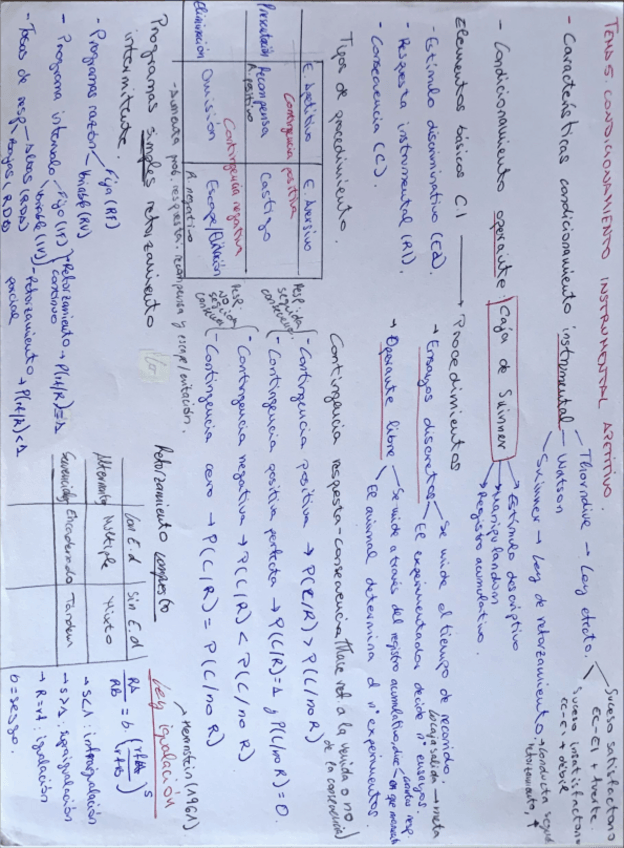 TEMA 5. CONDICIONAMIENTO INSTRUMENTAL APETITIVO.
- Características condicionamiento instrumental
Thorndive → Ley efecto.
Suceso satisfactorio
EC-E1 + fuerte.
Suceso insatisfactorio
EC-E1 + débil
Watson
Skinner → Ley de reforzamiento → conducta seguida
reforzamiento, ↑
- Condicionamiento operante
Caja de Skinner
→ Estímulo descriptivo
→ Manipulandum
→ Registro acumulativo.
Elementos básicos C.I → Procedimientos
- Estímulo discriminativo (Ed).
- Respuesta instrumental (RI).
- Consecuencia (C).
→ Ensayos discretos
Se mide el tiempo de recorrido
caja salida → meta
El experimentador decide nº ensayos
→ Operante libre
Se mide a través del registro acumulativo
El animal determina el nº experimentos.
Tipos de procedimiento.
E. Apetitivo
E. Aversivo
Contingencia positiva
Presentación
Recompensa
A. positivo
Castigo
Contingencia negativa
Eliminación
Omisión
Escape/Evitación
A negativo
- Aumenta prob. respuesta: recompensa y escape/evitación.
Contingencia respuesta-consecuencia (Hace ref a la venida o no
de la consecuencia)
Resp. seguida consecuenc.
- Contingencia positiva → P(C/R) > P(C/no R)
- Contingencia positiva perfecta → P(C/R)=1 y P(C/no R)=0.
Resp. NO seguida consecu.
- Contingencia negativa → P(C/R) < P(C/no R)
- Contingencia cero → P(C/R) = P(C/no R)
Programas simples reforzamiento
intermitente.
- Programa razón
Fija (RF)
Variable (RV)
- Programa intervalo
Fijo (IF)
Variable (IV)
- Reforzamiento continuo → P(C/R)=1
- Reforzamiento parcial → P(C/R)<1
- Tasas de resp.
Altas (RDA)
Bajas (RDB)
Reforzamiento compuesto
Con E.d
Sin E.d
Alternanto
Múltiple
Mixto
Secuencial
Encadenado
Tandem
Ley igualación
→ Herrnstein (1961)
RA/RB = b (rfA/rfB)^s
→ s<1: infraigualación
→ s>1: supraigualación
→ R=rf: igualación
b = sesgo.